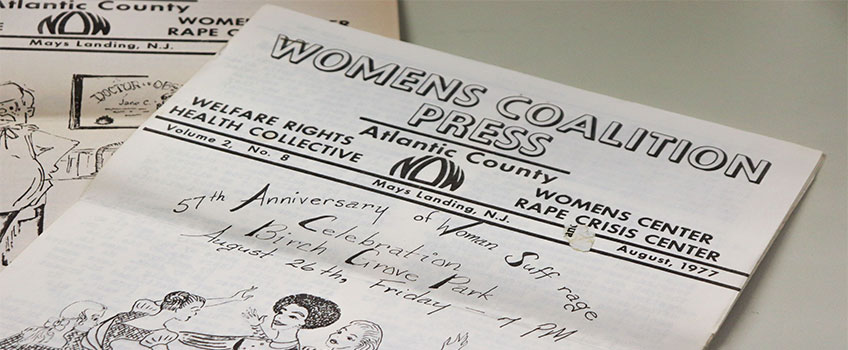 Atlantic County
NOW
Mays Landing, N.J.
WOMENS
RAPE CRISIS
DOCTOR OF
Jane C.
WOMENS COALITION
PRESS
WELFARE RIGHTS
HEALTH COLLECTIVE
Atlantic County
NOW
Mays Landing, N.J.
WOMENS CENTER
RAPE CRISIS CENTER
Volume 2, No. 8
August, 1977
57th Anniversary of Woman Suffrage
Celebration
Birch Grove Park
August 26th, Friday -
PM